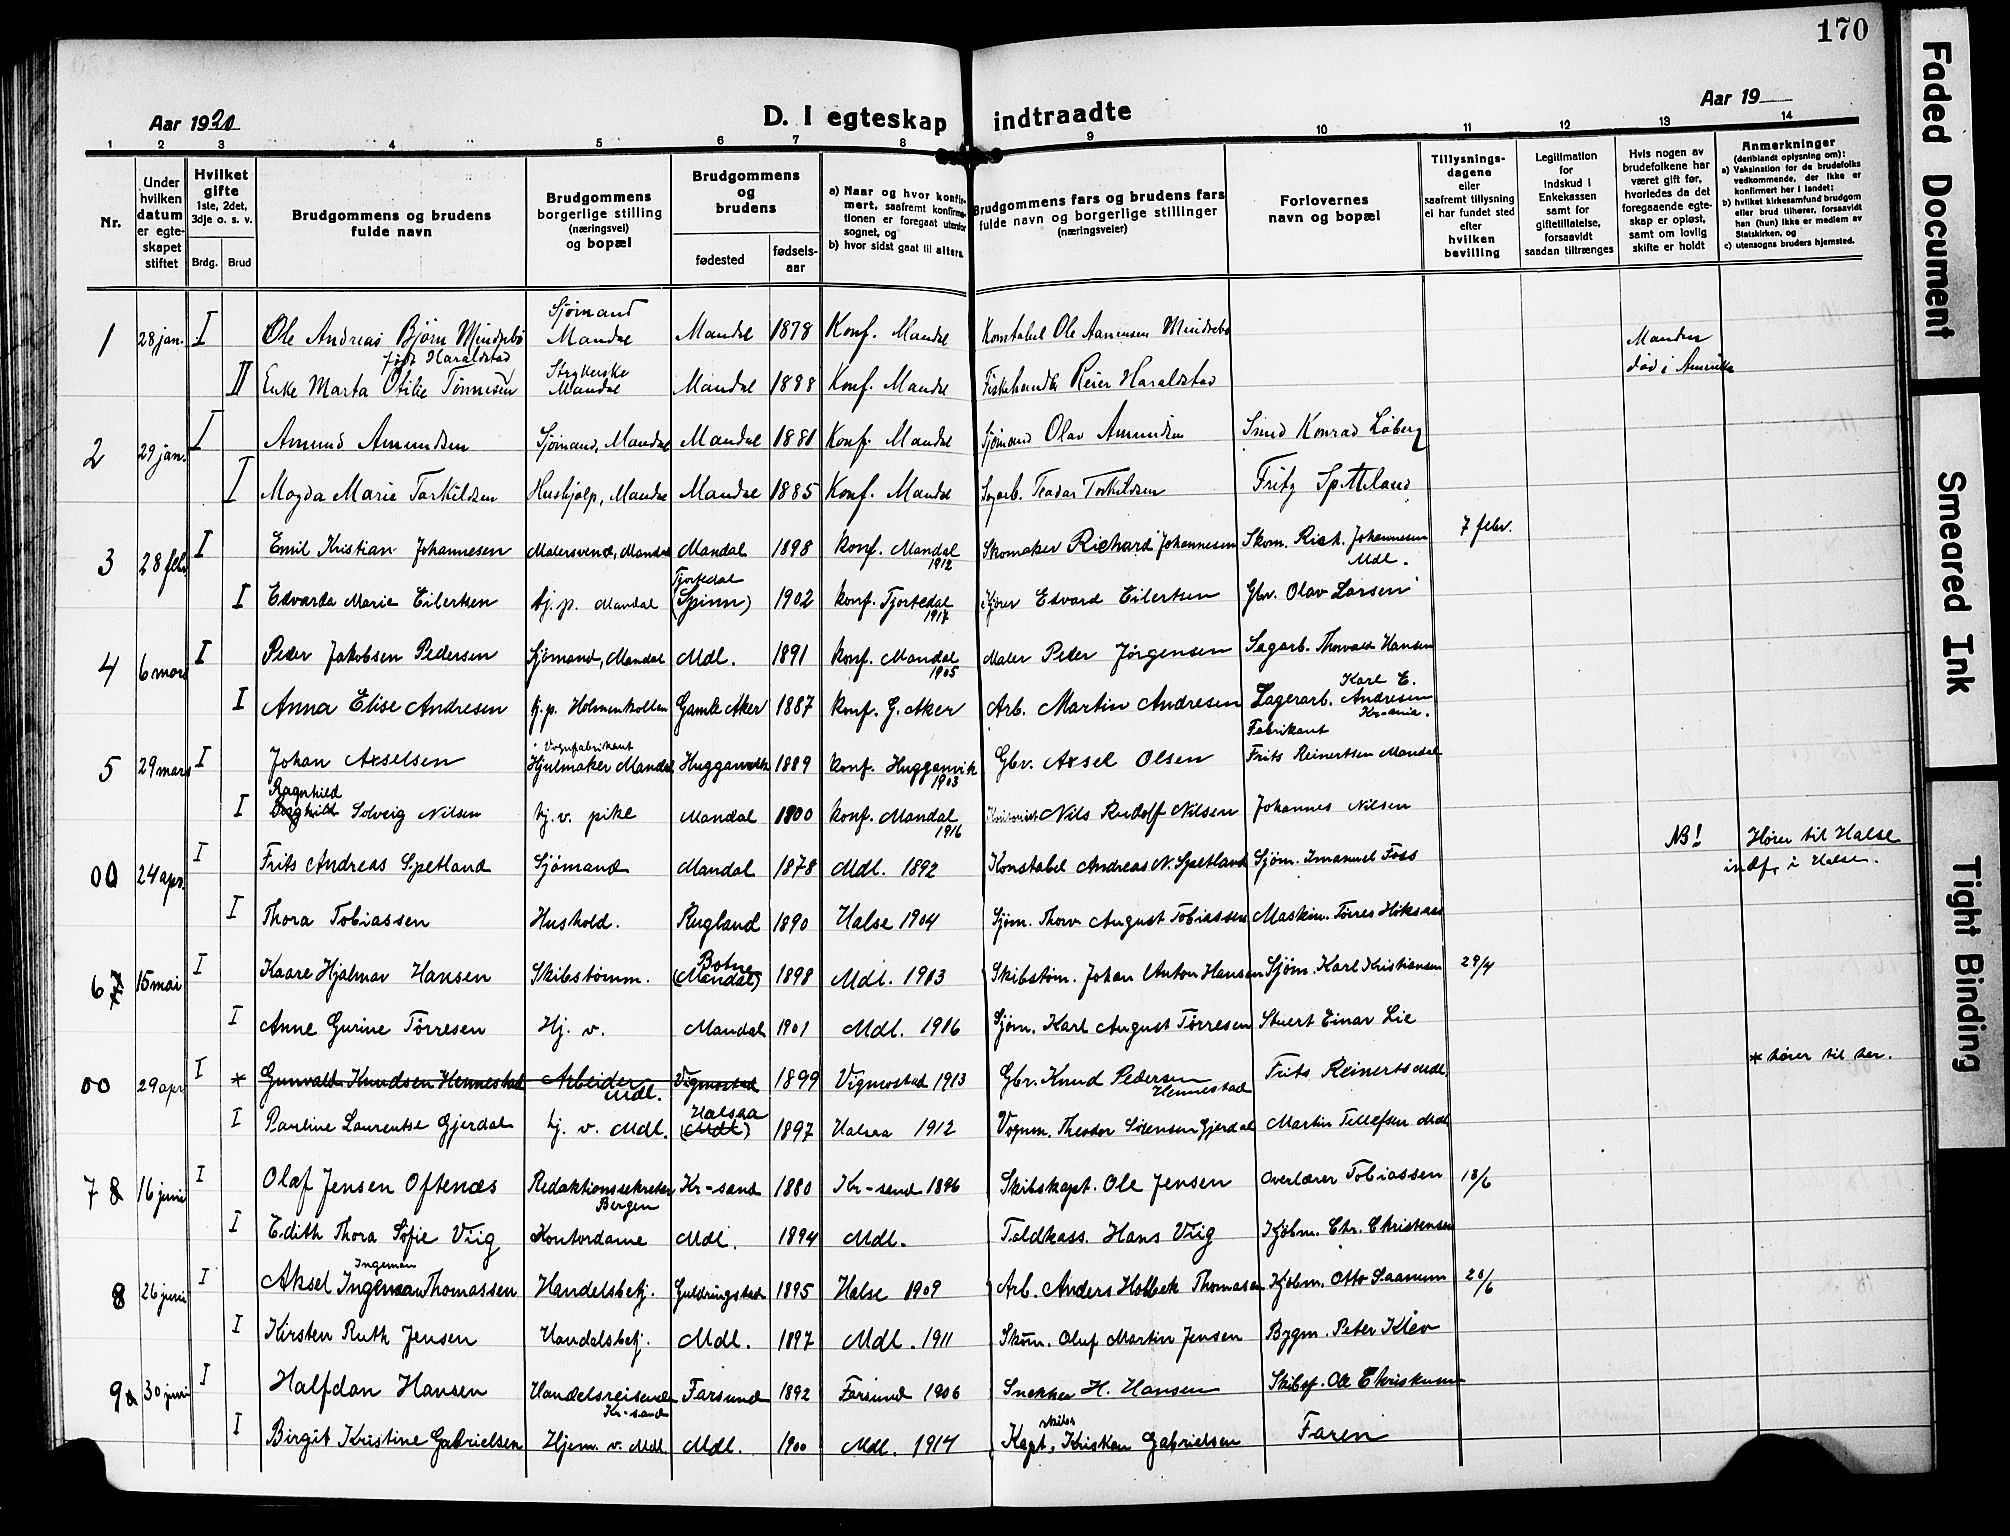 170
Aar 1920
D. I egteskap indtraadte
Aar 19
1 2 3 4 5 6 7 8 9 10 11 12 13 14
Nr.
Under hvilken datum er egteskapet stiftet
Hvilket gifte 1ste, 2det, 3dje o. s. v.
Brdg. Brud
Brudgommens og brudens fulde navn
Brudgommens borgerlige stilling (næringsvei) og bopæl
Brudgommens og brudens
fødested
fødselsaar
a) Naar og hvor konfirmert, saafremt konfirmationen er foregaat utenfor sognet, og
b) hvor sidst gaat til alters.
Brudgommens fars og brudens fars fulde navn og borgerlige stillinger (næringsveier)
Forlovernes navn og bopæl
Tillysningsdagene eller saafremt tillysning ei har fundet sted efter hvilken bevilling
Legitimation for indskud i Enkekassen samt for giftetillatelse, forsaavidt saadan tiltrænges
Hvis nogen av brudefolkene har været gift før, hvorledes da det foregaaende egteskap er opløst, samt om lovlig skifte er holdt
Anmerkninger (deriblandt oplysning om):
a) Vaksination for de brudefolks vedkommende, der ikke er konfirmert her i landet;
b) hvilket kirkesamfund brudgom eller brud tilhører, forsaavidt han (hun) ikke er medlem av Statskirken, og
c) utensogns bruders hjemsted.
1 28 jan. I Ole Andreas Bjørn Mindrebø Sjømand Mandal Mandal 1878 Konf. Mandal Konstabel Ole Aanensen Mindrebø
Manden død i Amerika
II Enke Marta Otilie Tønnesen født Haraldstad Strykerske Mandal Mandal 1888 Konf. Mandal Fiskehandler Reier Haraldstad
2 29 jan. I Amund Amundsen Sjømand, Mandal Mandal 1881 Konf. Mandal Sjømand Olav Amundsen Smed Konrad Løberg
I Magda Marie Torkildsen Hushjælp, Mandal Mandal 1885 Konf. Mandal Sagarb. Teodor Torkildsen Fritz Spetteland
3 28 febr. I Emil Kristian Johannesen Malersvend, Mandal Mandal 1898 konf. Mandal 1912 Skomaker Richard Johannesen Skom. Rich. Johannesen Mdl. 7 febr.
I Edvarda Marie Eilertsen hj. p. Mandal Fjotedal (Spinn) 1902 konf. Fjotedal 1917 Kjører Edvard Eilertsen Gbr. Olav Larsen
4 6 mars I Peder Jakobsen Pedersen Sjømand, Mandal Mdl. 1891 konf. Mandal 1905 Maler Peder Jørgensen Sagarb. Thorvald Hansen
I Anna Elise Andresen hj. p. Holmenkollen Gamle Aker 1887 konf. G. Aker Arb. Martin Andresen Lagerarb. Karl E. Andresen Kr-ania.
5 29 mars I Johan Axselsen Vognfabrikant Hjulmaker Mandal Huggenvik 1889 konf. Hugganvik 1903 Gbr. Axsel Olsen Fabrikant Frits Reinertsen Mandal
I Ragnhild Borghild Solveig Nilsen hj. v. pike Mandal 1900 konf. Mandal 1916 Nils Rudolf Nilsen Johannes Nilsen
00 24 apr. I Frits Andreas Spetland Sjømand Mandal 1878 Mdl. 1892 Konstabel Andreas N. Spetland Sjøm. Imanuel Foss NB! Hører til Halse indf. i Halse.
I Thora Tobiassen Hushold. Rugland 1890 Halse 1904 Sjøm. Thorv August Tobiassen Maskin. Tørres Höksaas
6 7 15 mai I Kaare Hjalmar Hansen Skibstømm. Botne (Mandal) 1898 Mdl. 1913 Skibstøm. Johan Anton Hansen Sjøm. Karl Kristiansen 29/4
I Anne Gurine Tørresen Hj. v. Mandal 1901 Mdl. 1916 Sjøm. Karl August Tørresen Stuert Einar Lie
00 29 apr I * Gunvald Knudsen Hennestad Arbeider Mdl. Vigmostad 1899 Vigmostad 1913 Gbr. Knud Pedersen Hennestad Frits Reinerts Mdl. * hører til her.
I Pauline Laurentse Gjerdal hj. v. Mdl. Halsaa (Mdl) 1897 Halsaa 1912 Vognm. Theodor Sørensen Gjerdal Martin Tellefsen Mdl
7 8 16 juni I Olaf Jensen Oftenæs Redaktionssekretær Bergen Kr-sand 1880 Kr-sand 1896 Skibskapt. Ole Jensen Overlærer Tobiassen 13/6
I Edith Thora Sofie Viig Kontordame Mdl. 1894 Mdl. Toldkass. Hans Viig Kjøbm. Chr. Christensen
8 26 juni I Aksel Ingeman Ingeman Thomassen Handelsbetj. Guldringstad 1895 Halse 1909 Arb. Anders Holbek Thomassen Kjøbm. Otto Saanum 20/6
I Kirsten Ruth Jensen Handelsbetj. Mdl. 1897 Mdl. 1911 Skom. Oluf Martin Jensen Bygm. Peter Kløv
9 30 juni I Halfdan Hansen Handelsreisende Kr-sand Farsund 1892 Farsund 1906 Snekker H. Hansen Skibsf. Ole Christensen
I Birgit Kristine Gabrielsen Hjem. v. Mdl. Mdl. 1900 Mdl. 1914 skibs Kapt. Kristian Gabrielsen Faren
Faded Document
Smeared Ink
Tight Binding